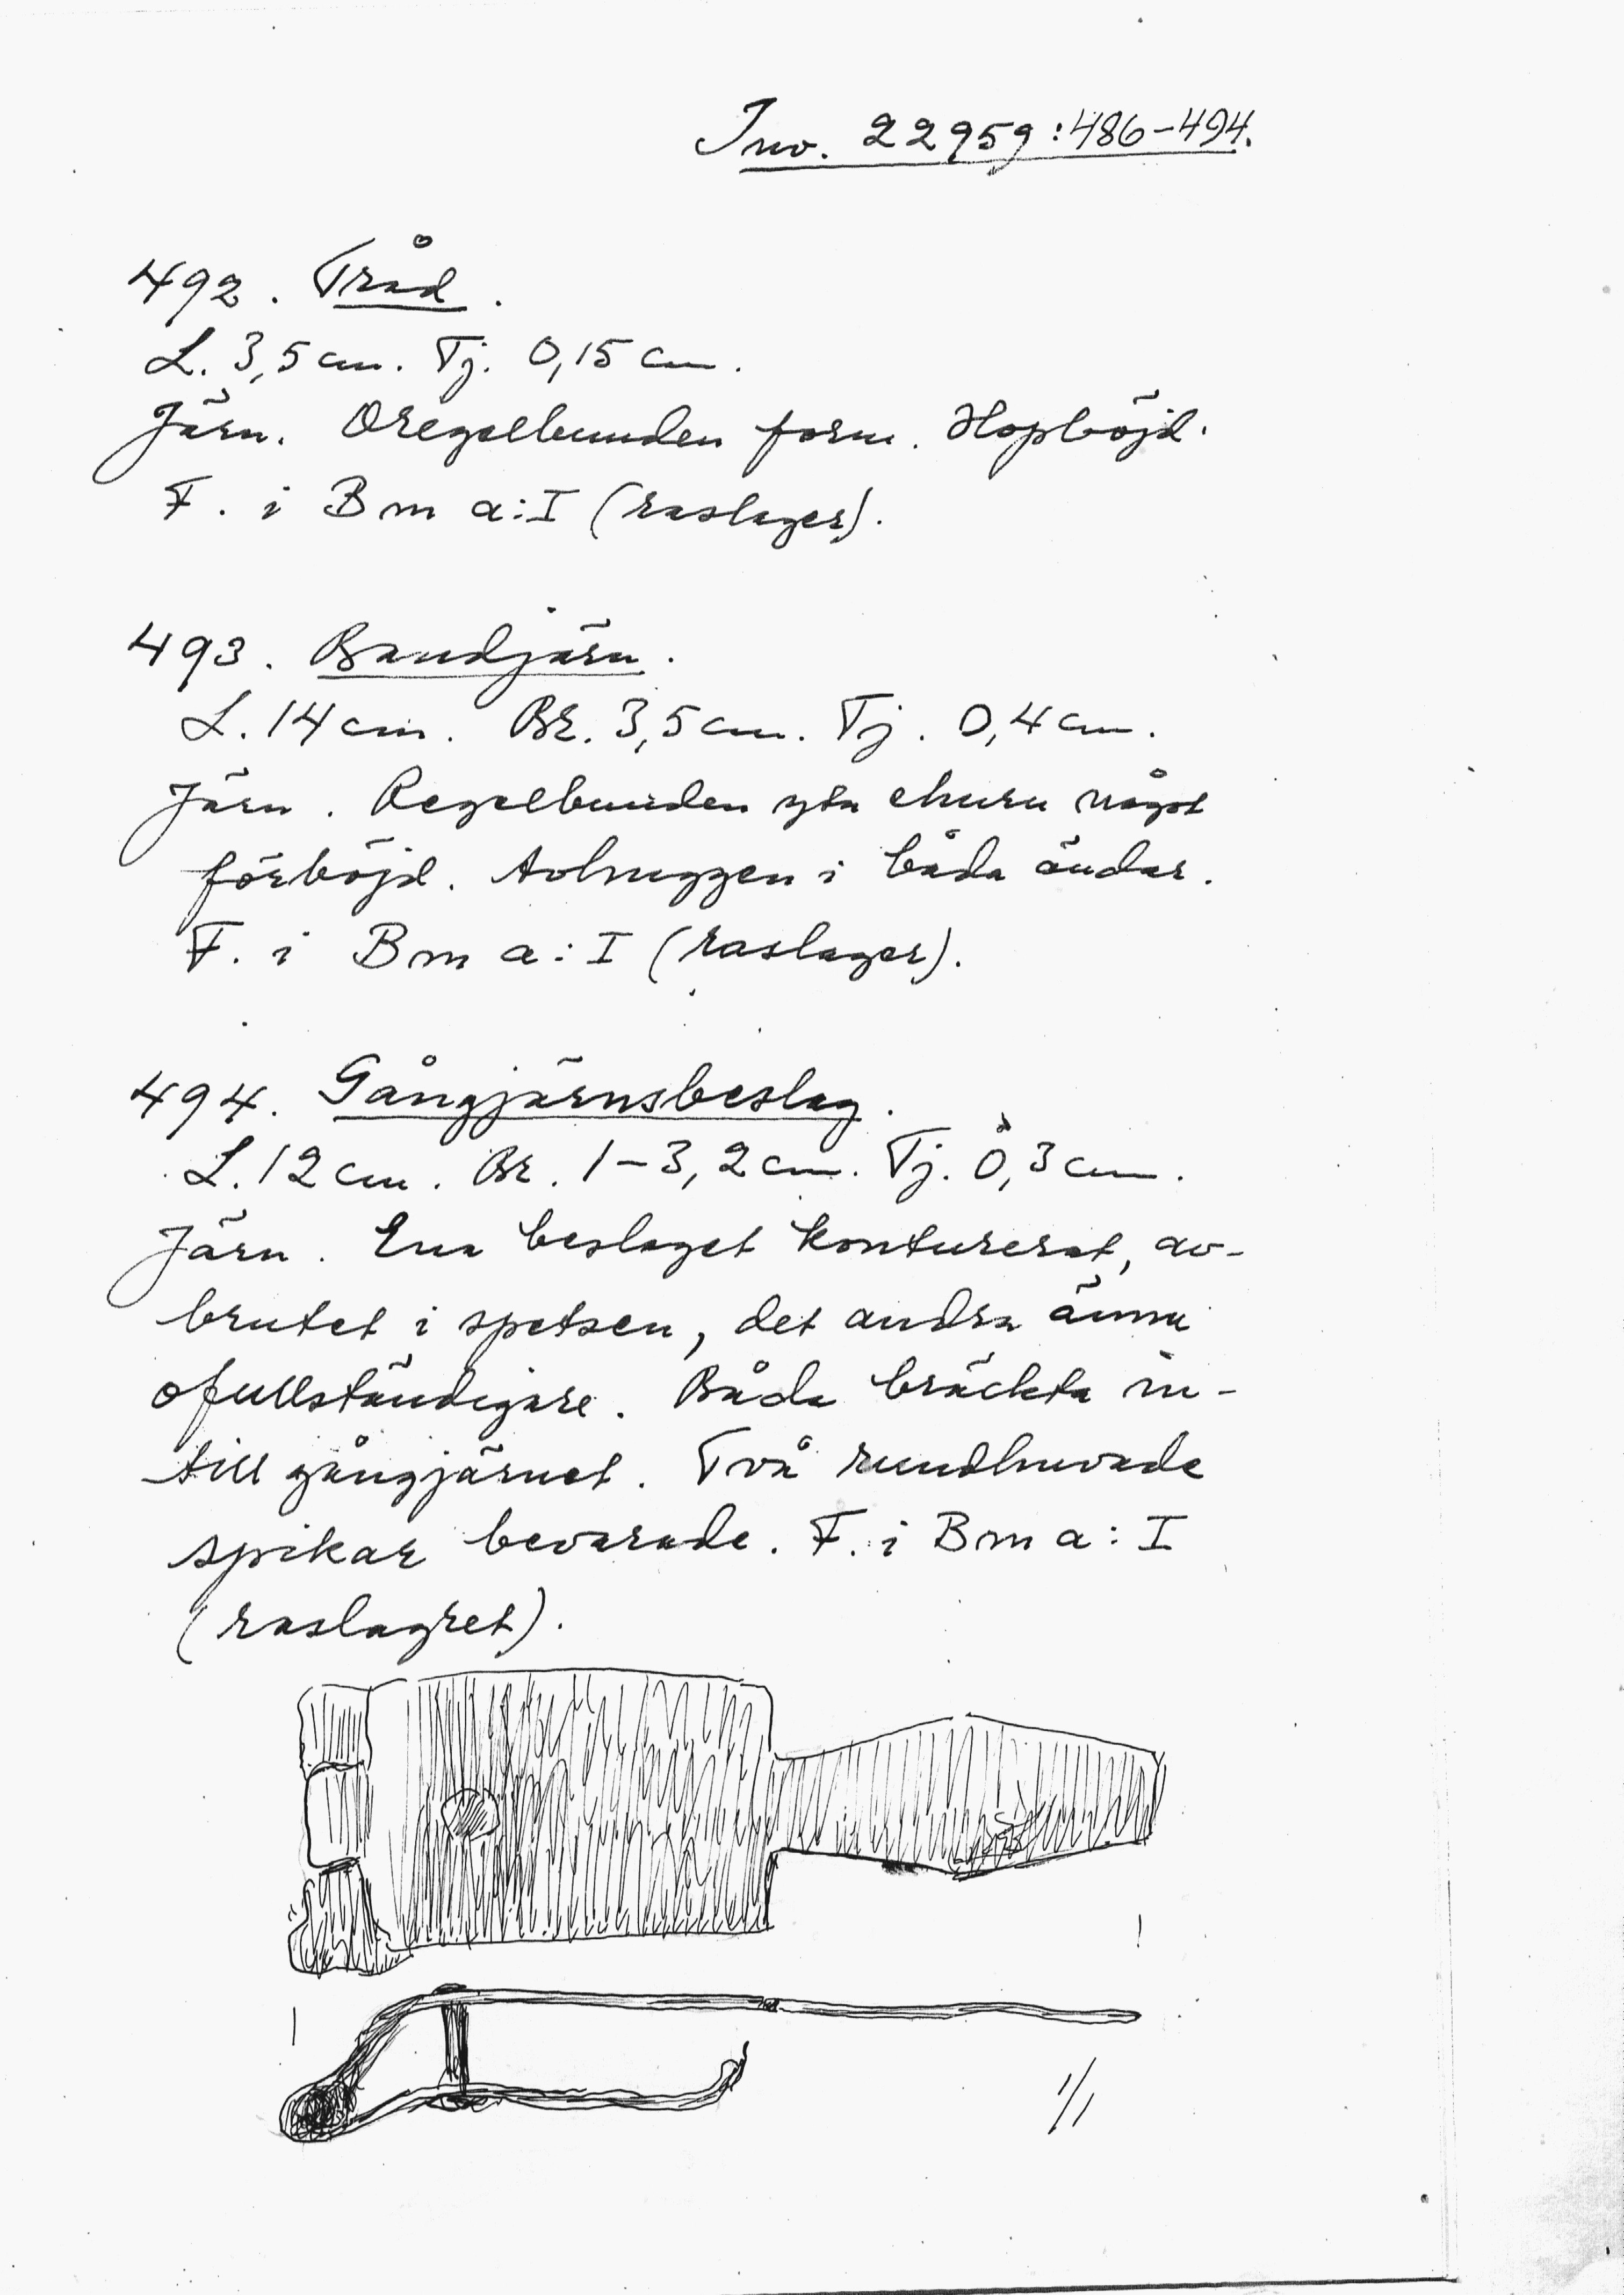 Inv. 22959:486-494.
492. Tråd.
L. 3,5 cm. Tj. 0,15 cm.
Järn. Oregelbunden form. Hopböjd.
F. i Bm a:I (raslager).
493. Bandjärn.
L. 14 cm. Br. 3,5 cm. Tj. 0,4 cm.
Järn. Regelbunden yta ehuru något
förböjd. Avhuggen i båda ändar.
F. i Bm a:I (raslager).
494. Gångjärnsbeslag.
L. 12 cm. Br. 1-3,2 cm. Tj. 0,3 cm.
Järn. Ena beslaget konturerat, av-
brutet i spetsen, det andra ännu
ofullständigare. Båda bräckta in-
till gångjärnet. Två rundhuvade
spikar bevarade. F. i Bm a:I
(raslagret).
1/1